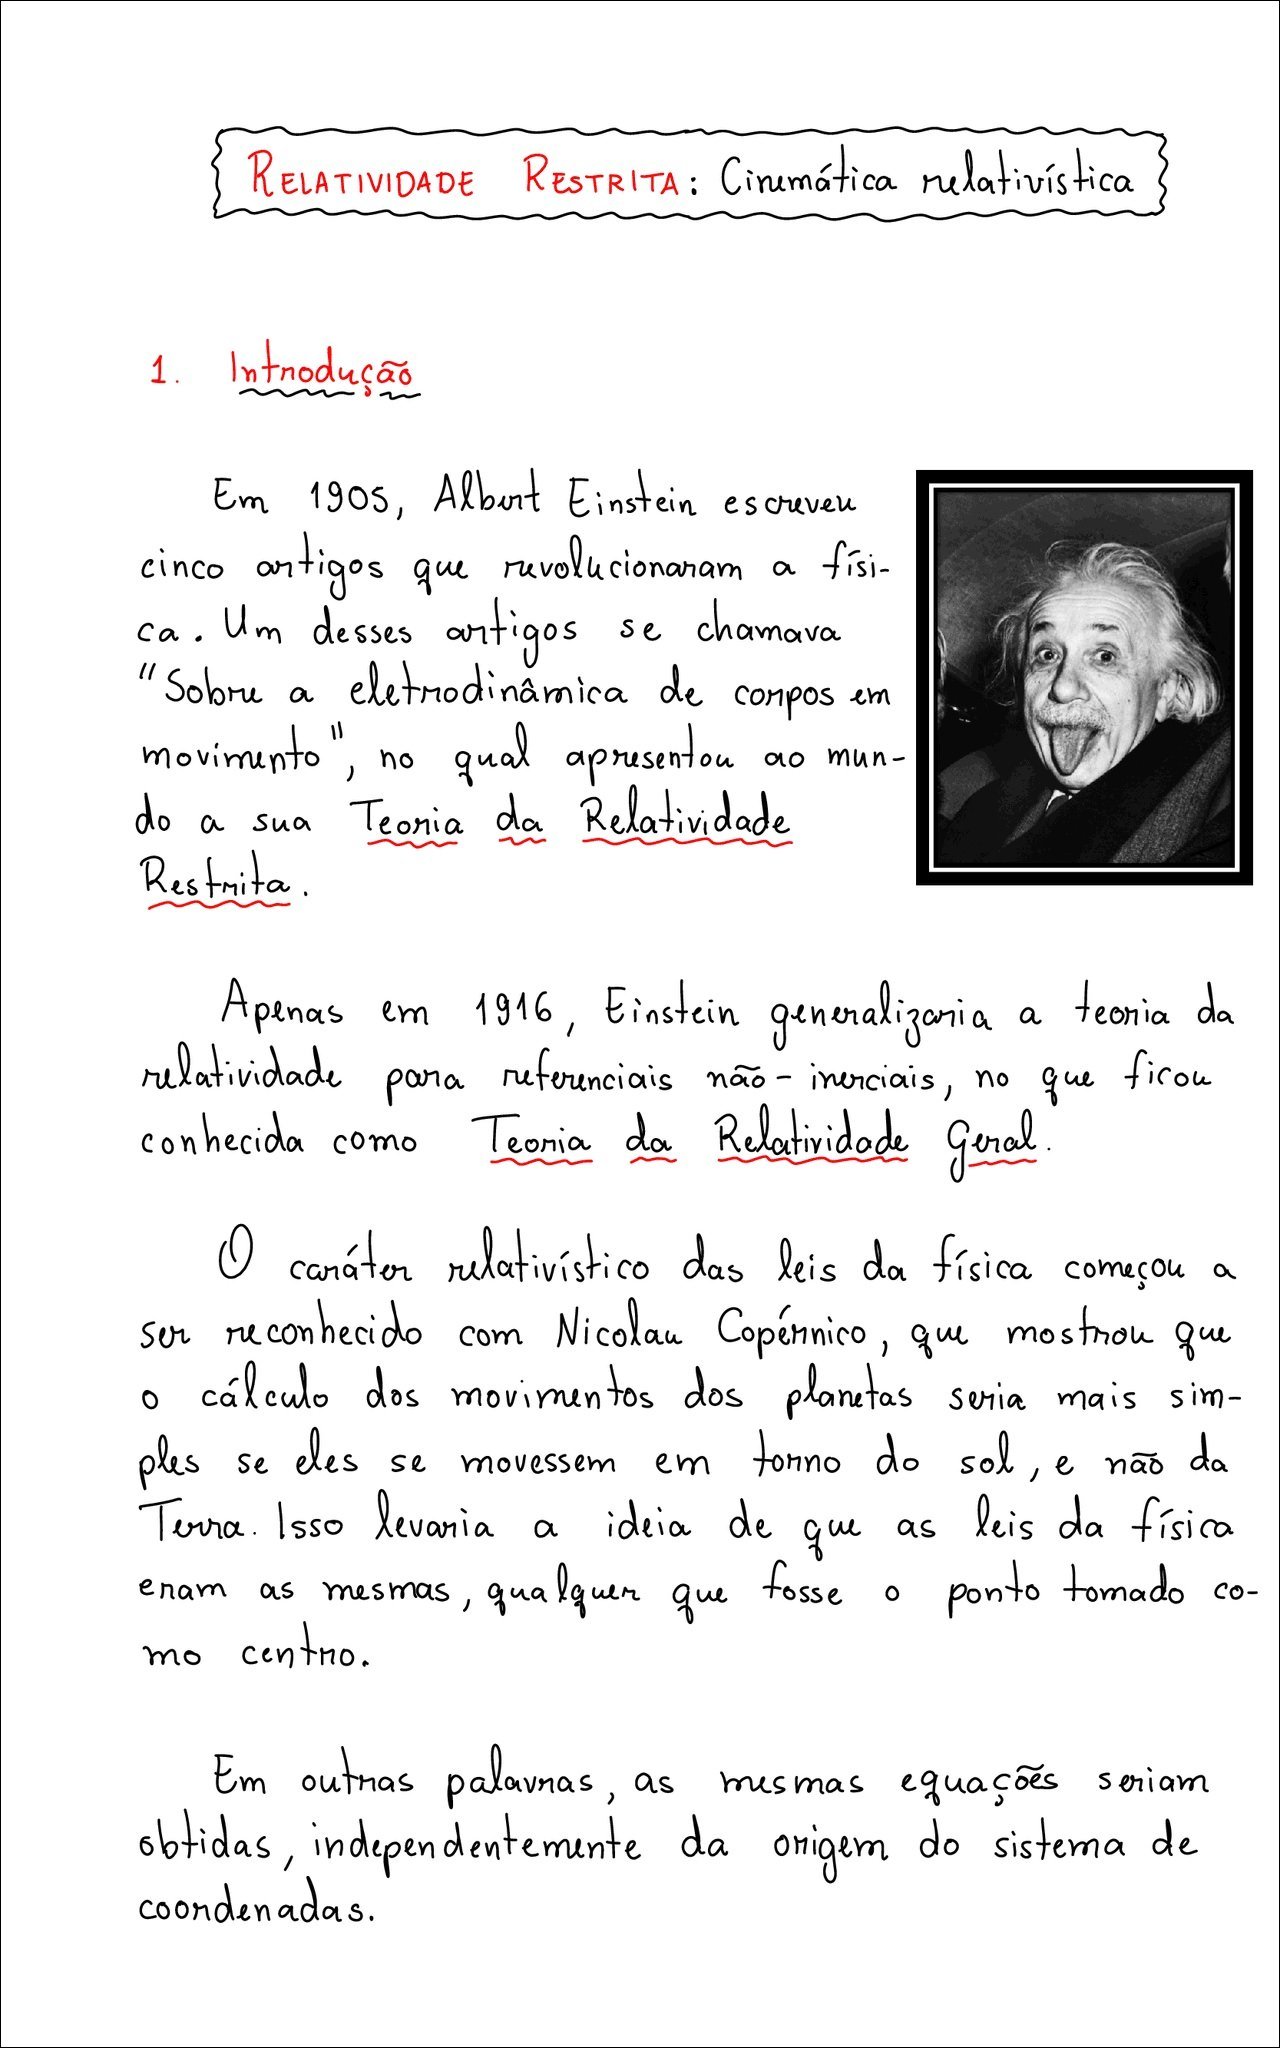 RELATIVIDADE RESTRITA: Cinemática relativística
1. Introdução
Em 1905, Albert Einstein escreveu
cinco artigos que revolucionaram a físi-
ca. Um desses artigos se chamava
"Sobre a eletrodinâmica de corpos em
movimento", no qual apresentou ao mun-
do a sua Teoria da Relatividade
Restrita.
Apenas em 1916, Einstein generalizaria a teoria da
relatividade para referenciais não-inerciais, no que ficou
conhecida como Teoria da Relatividade Geral.
O caráter relativístico das leis da física começou a
ser reconhecido com Nicolau Copérnico, que mostrou que
o cálculo dos movimentos dos planetas seria mais sim-
ples se eles se movessem em torno do sol, e não da
Terra. Isso levaria a ideia de que as leis da física
eram as mesmas, qualquer que fosse o ponto tomado co-
mo centro.
Em outras palavras, as mesmas equações seriam
obtidas, independentemente da origem do sistema de
coordenadas.